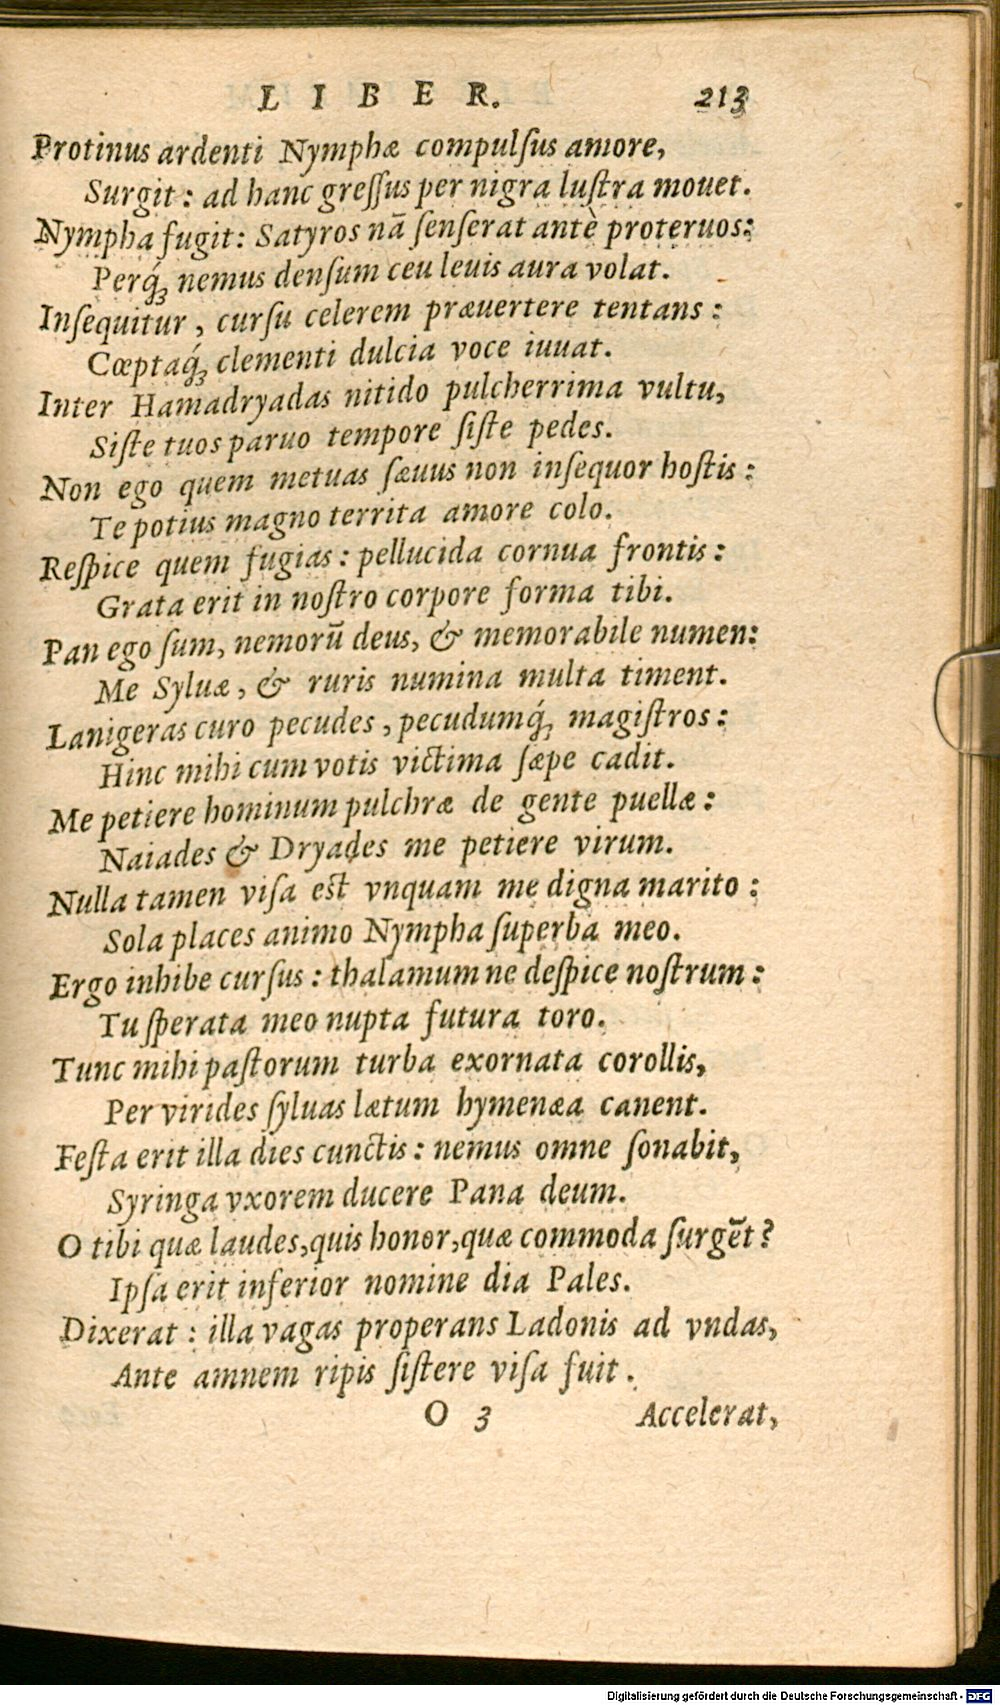 LIBER. 213
Protinus ardenti Nymphæ compulſus amore,
Surgit: ad hanc greſſus per nigra luſtra mouet.
Nympha fugit: Satyros nã ſenſerat antè proteruos:
Perq́ꝫ nemus denſum ceu leuis aura volat.
Inſequitur, curſu celerem præuertere tentans:
Cœptaq́ꝫ clementi dulcia voce iuuat.
Inter Hamadryadas nitido pulcherrima vultu,
Siſte tuos paruo tempore ſiſte pedes.
Non ego quem metuas ſæuus non inſequor hoſtis:
Te potius magno territa amore colo.
Reſpice quem fugias: pellucida cornua frontis:
Grata erit in noſtro corpore forma tibi.
Pan ego ſum, nemorũ deus, & memorabile numen:
Me Syluæ, & ruris numina multa timent.
Lanigeras curo pecudes, pecudumq́ꝫ magiſtros:
Hinc mihi cum votis victima ſæpe cadit.
Me petiere hominum pulchræ de gente puellæ:
Naiades & Dryades me petiere virum.
Nulla tamen viſa eſt vnquam me digna marito:
Sola places animo Nympha ſuperba meo.
Ergo inhibe curſus: thalamum ne deſpice noſtrum:
Tu ſperata meo nupta futura toro.
Tunc mihi paſtorum turba exornata corollis,
Per virides ſyluas lætum hymenæa canent.
Feſta erit illa dies cunctis: nemus omne ſonabit,
Syringa vxorem ducere Pana deum.
O tibi quæ laudes, quis honor, quæ commoda ſurgẽt?
Ipſa erit inferior nomine dia Pales.
Dixerat: illa vagas properans Ladonis ad vndas,
Ante amnem ripis ſiſtere viſa fuit.
O 3 Accelerat,
Digitalisierung gefördert durch die Deutsche Forschungsgemeinschaft - DFG